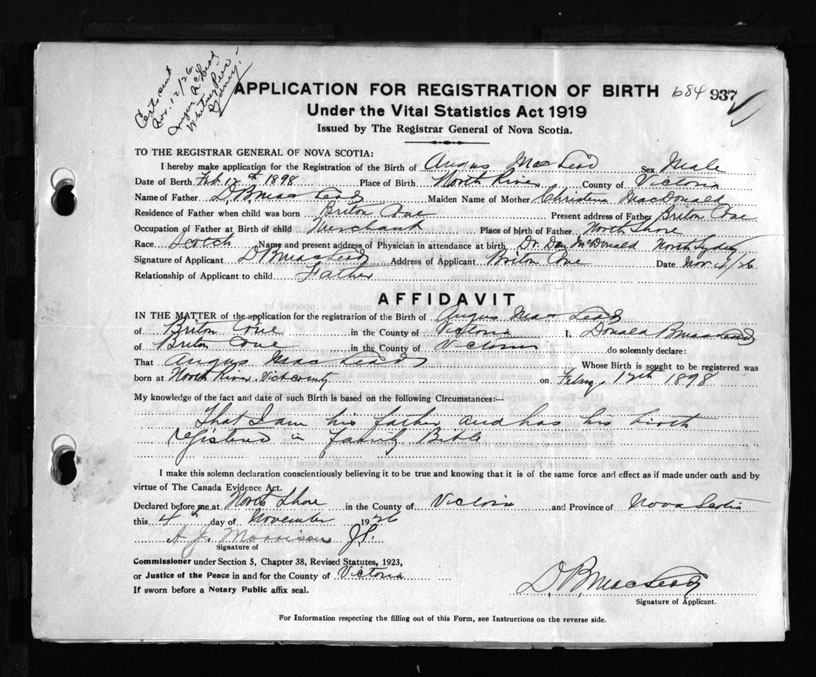 Cert sent
Nov. 12/26
Angus McLeod
Whitney Pier
Sydney.
APPLICATION FOR REGISTRATION OF BIRTH 684 937
Under the Vital Statistics Act 1919
Issued by The Registrar General of Nova Scotia.
TO THE REGISTRAR GENERAL OF NOVA SCOTIA:
I hereby make application for the Registration of the Birth of Angus MacLeod Sex Male
Date of Birth Feb 12th 1898 Place of Birth North River County of Victoria
Name of Father D B MacLeod Maiden Name of Mother Christena MacDonald
Residence of Father when child was born Briton Cove Present address of Father Briton Cove
Occupation of Father at Birth of child Merchant Place of birth of Father North Shore
Race Scotch Name and present address of Physician in attendance at birth Dr. Dan McDonald North Sydney
Signature of Applicant D B MacLeod Address of Applicant Briton Cove Date Nov 4/26
Relationship of Applicant to child Father
AFFIDAVIT
IN THE MATTER of the application for the registration of the Birth of Angus MacLeod
of Briton Cove in the County of Victoria I, Donald B MacLeod
of Briton Cove in the County of Victoria do solemnly declare:
That Angus MacLeod Whose Birth is sought to be registered was
born at North River Vict county on Febry 12th 1898
My knowledge of the fact and date of such Birth is based on the following Circumstances:—
That I am his father and has his birth
registered in family Bible
I make this solemn declaration conscientiously believing it to be true and knowing that it is of the same force and effect as if made under oath and by
virtue of The Canada Evidence Act.
Declared before me at North Shore in the County of Victoria and Province of Nova Scotia
this 4th day of November 1926
A. J. Morrison J.P.
Signature of
Commissioner under Section 5, Chapter 38, Revised Statutes, 1923,
or Justice of the Peace in and for the County of Victoria
If sworn before a Notary Public affix seal.
D. B. MacLeod
Signature of Applicant.
For Information respecting the filling out of this Form, see Instructions on the reverse side.